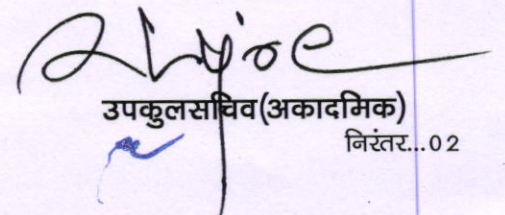 उपकुलसचिव(अकादमिक)
निरंतर...02